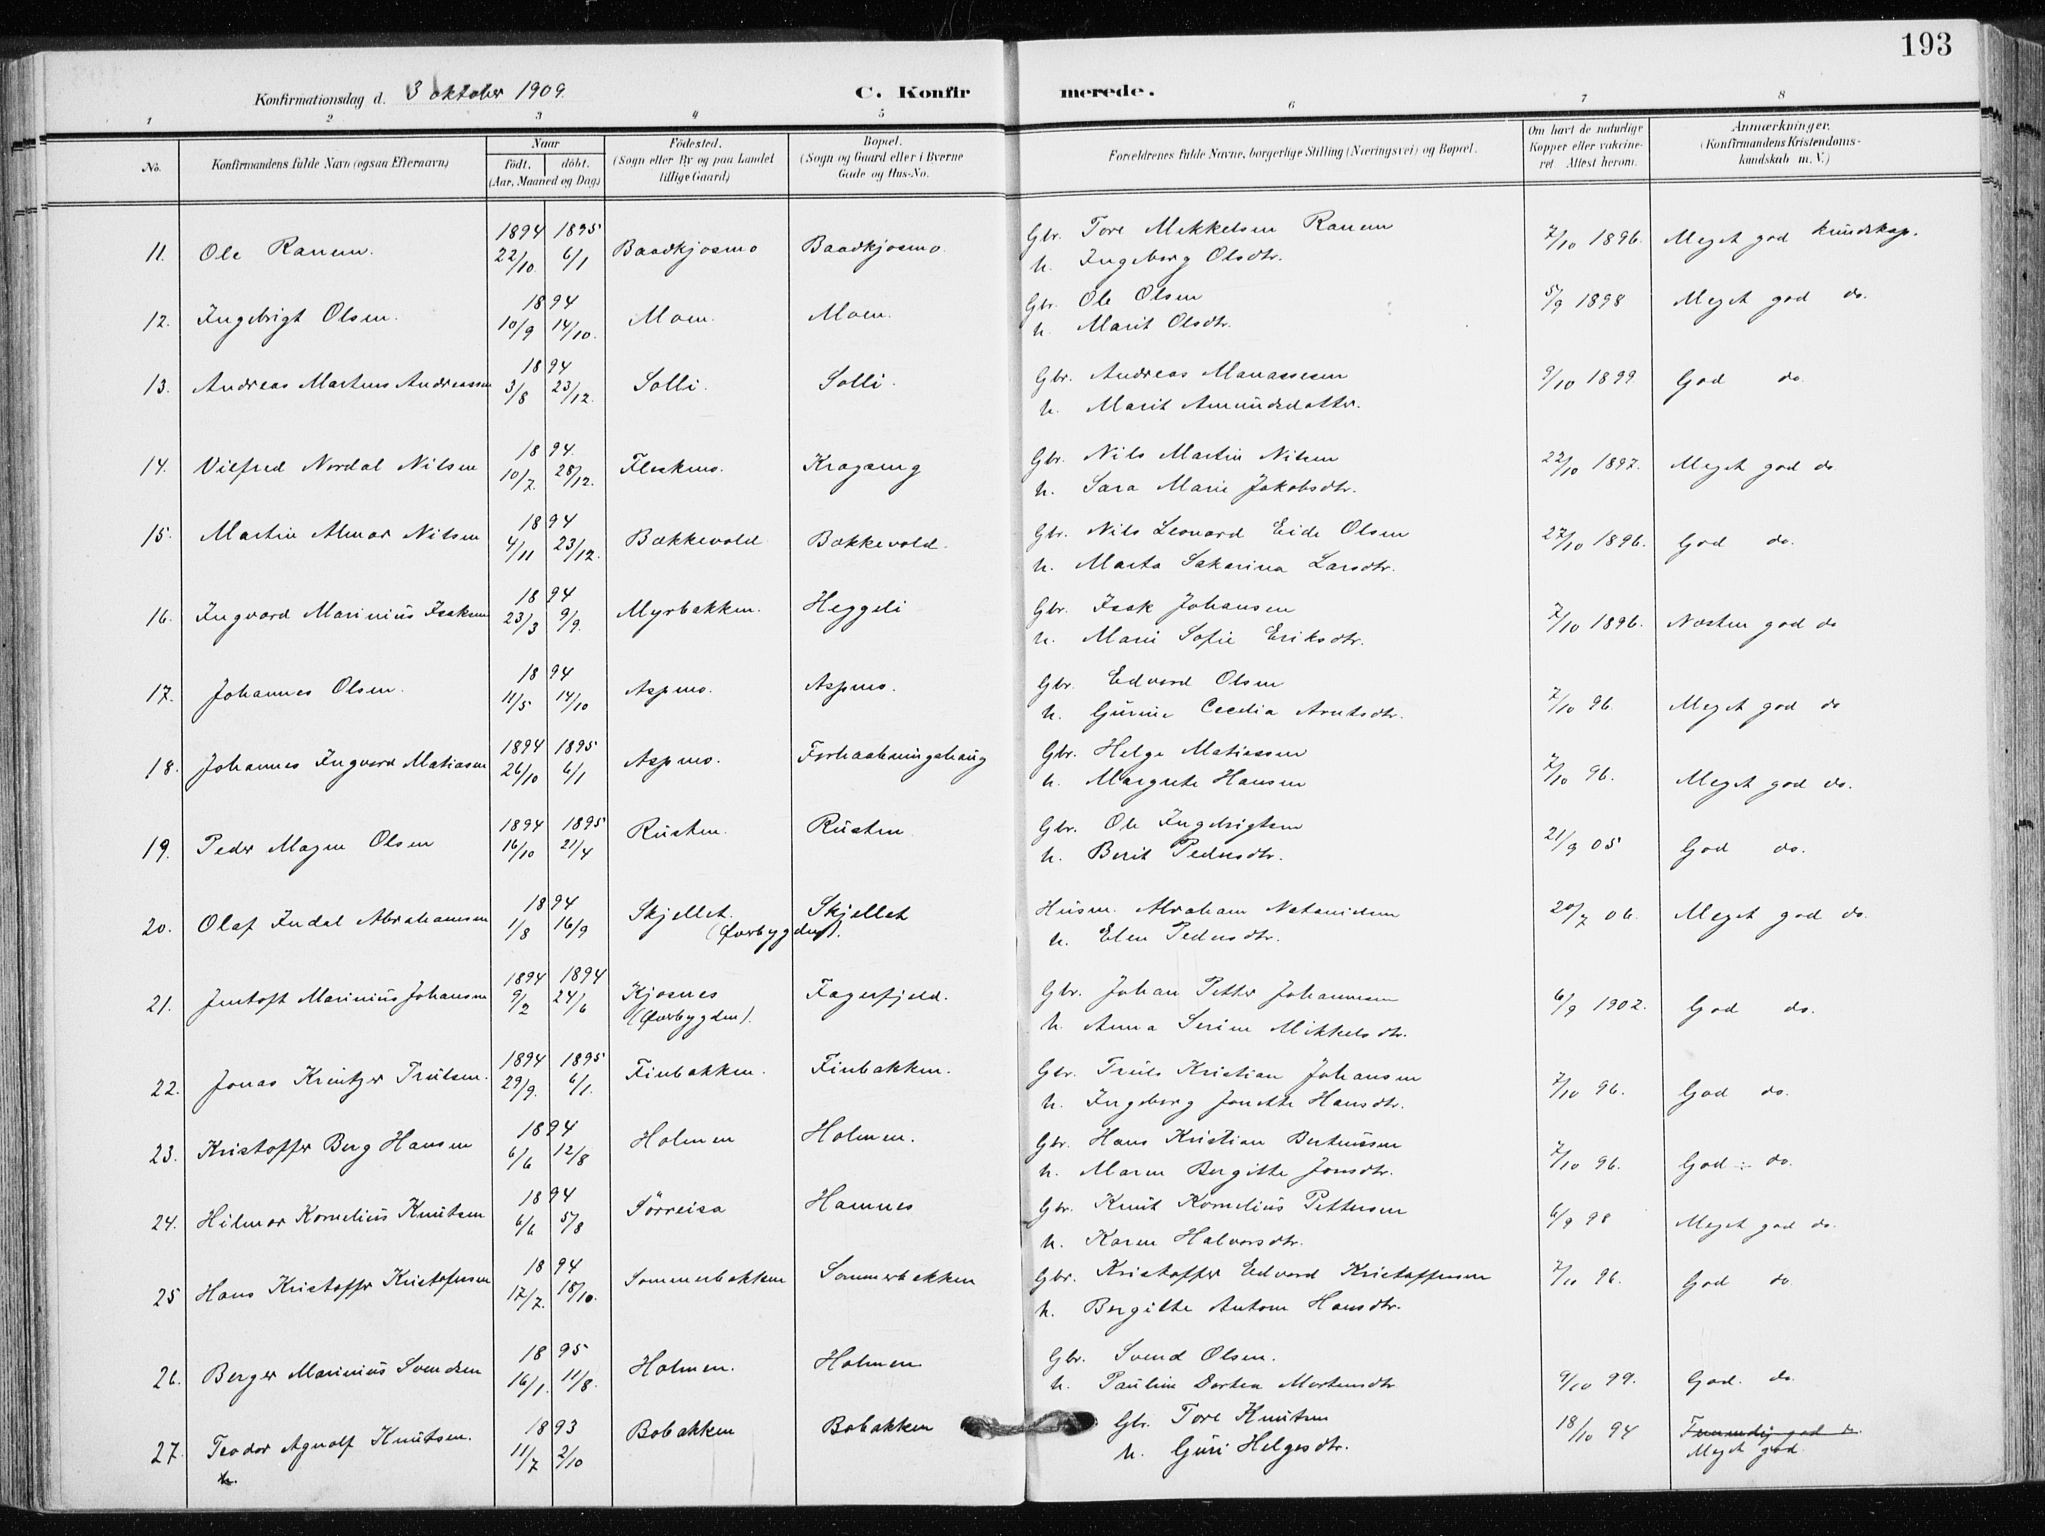 193
Konfirmationsdag d. 3 oktober 1909. C. Konfirmerede.
1 2 3 4 5 6 7 8
No. Konfirmandens fulde Navn (ogsaa Efternavn) Naar født, døbt. (Aar, Maaned og Dag) Fødested. (Sogn eller By og paa Landet tillige Gaard) Bopæl. (Sogn og Gaard eller i Byerne Gade og Hus-No. Forældrenes fulde Navne, borgerlige Stilling (Næringsvei) og Bopæl. Om havt de naturlige Kopper eller vakcineret Attest herom. Anmærkninger. (Konfirmandens Kristendomskundskab m. V.)
1894 1895 Gbr. Tore Mikkelsen Ranem
11. Ole Ranem. 22/10. 6/1 Baadkjosmo Baadkjosmo. 7/10 1896. Meget god kundskap.
h. Ingeborg Olsdtr.
1894 Gbr. Ole Olsen
12. Ingebrigt Olsen. 10/9 14/10. Moen. Moen. 5/9 1898 Meget god do.
h. Marit Olsdtr.
1894 Gbr. Andreas Manassesen
13. Andreas Martens Andreassen 3/8 23/12. Solli. Solli. 9/10 1899 God do.
h. Marit Amundsdatter.
1894. Gbr. Nils Martin Nilsen
14. Vilfred Nordal Nilsen 10/7. 28/12. Fleskmo. Krogseng 22/10 1897. Meget god do
h. Sara Marie Jakobsdtr.
1894 Gbr. Nils Leonard Eide Olsen
15. Martin Almar Nilsen 4/11 23/12. Bækkevold Bækkevold. 27/10 1896. God do.
h. Marta Sakarina Larsdtr.
1894 Gbr. Isak Johansen
16. Ingvard Marinius Isaksen 23/3 9/9. Myrbakken. Heggeli 7/10 1896. Næsten god do
h. Marie Sofie Eriksdtr.
1894 Gbr. Edvard Olsen
17. Johannes Olsen. 11/5 14/10 Aspmo. Aspmo. 7/10 96. Meget god do
h. Gurine Cecelia Arntsdtr.
1894 1895 Gbr. Helge Matiassen
18. Johannes Ingvard Matiasen 26/10 6/1 Aspmo. Forhaabningshaug 7/10 96. Meget god do.
h. Margrete Hansen
1894 1895 Gbr. Ole Ingebrigtsen
19. Peder Magne Olsen 16/10 21/4 Rusten. Rusten 21/9 05 God do.
h. Berit Pedersdtr.
1894 Husm. Abraham Natanielsen
20. Olaf Indal Abrahamsen 1/8 16/9 Skjellet. (Øverbygden). Skjellet 20/7 06. Meget god do.
h. Elen Pedersdtr.
1894 1894 Gbr. Johan Petter Johannesen
21. Jentoft Marinius Johansen 9/2 24/6 Kjosnes (Øverbygden). Fagerfjeld. 6/9 1902. God do.
h. Anna Serine Mikkelsdtr.
1894 1895 Gbr. Truls Kristian Johansen
22. Jonas Kreutzer Trulsen. 29/9. 6/1. Finbakken. Finbakken. 7/10 96. God do.
h. Ingeborg Jonette Hansdtr.
1894 Gbr. Hans Kristian Berteussen
23. Kristoffer Berg Hansen 6/6 12/8 Holmen Holmen. 7/10 96. God do.
h. Maren Bergitte Jonsdtr.
1894 Gbr. Knut Kornelius Pettersen
24. Hilmar Kornelius Knutsen 6/6 5/8 Sørreisa Hamnes 6/9 98 Meget god do.
h. Karen Halvorsdtr.
1894 Gbr. Kristoffer Edvard Kristoffersen
25 Hans Kristoffer Kristofersen 17/7. 18/10. Sommerbakken Sommerbakken 7/10 96. God do
h. Bergitte Antone Hansdtr.
1895 Gbr. Svend Olsen.
26. Berger Marinius Svendsen 16/1. 11/8. Holmen. Holmen. 9/10 99. God. do.
h. Pauline Dortea Mortensdtr
1893 Gbr. Tore Knutsen
27. Teodor Agnolf Knutsen. 11/7 2/10 Bobakken Bobakken 18/10 94
h. Guri Helgesdtr. Meget god
h.